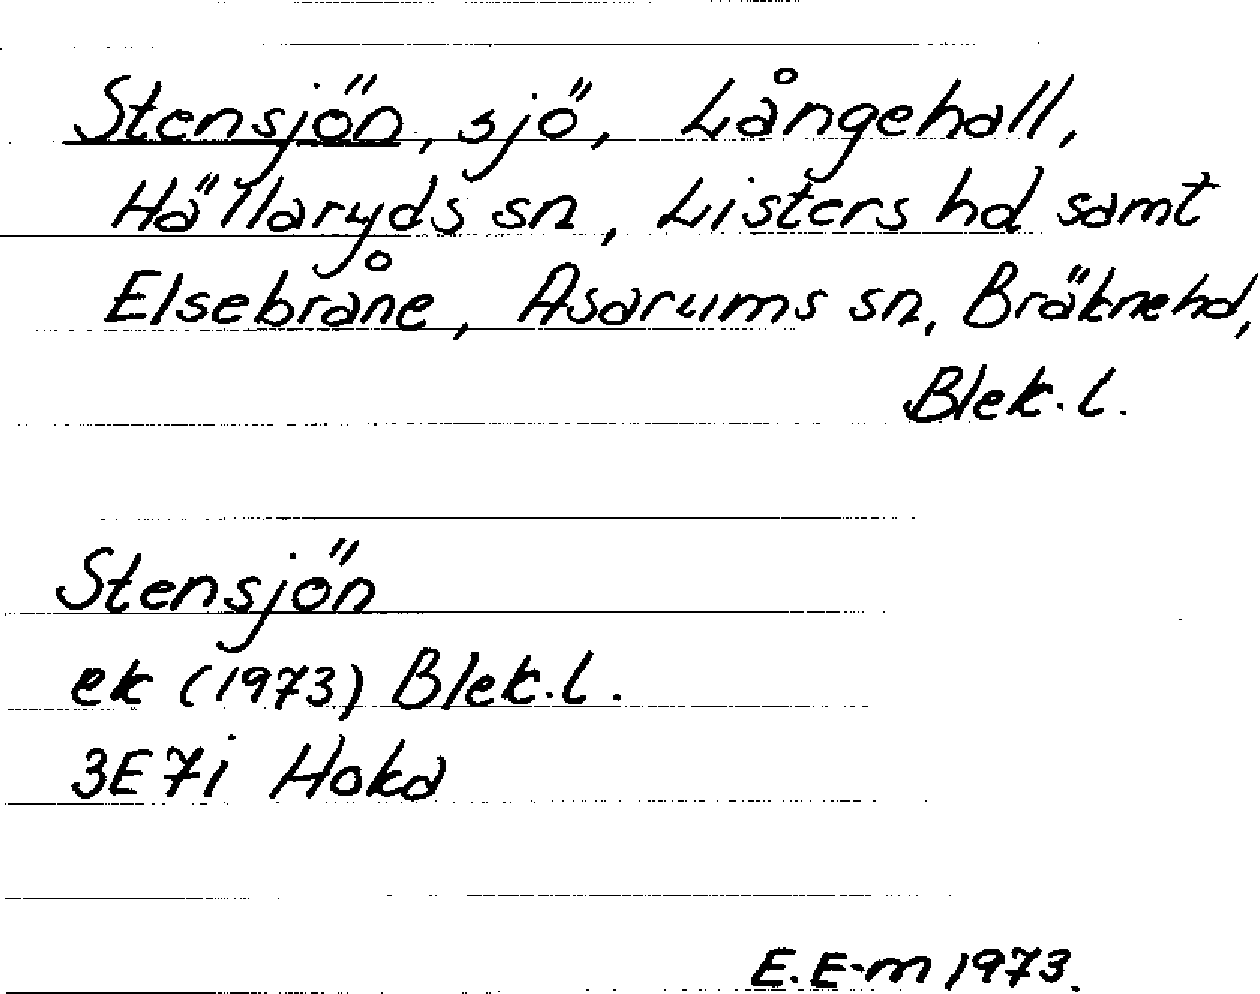 Stensjön, sjö, Långehall,
Hällaryds sn, Listers hd samt
Elsebråne, Asarums sn, Bräkne hd,
Blek. l.
Stensjön
ek (1973) Blek. l.
3E7i Hoka
E. E-m 1973.